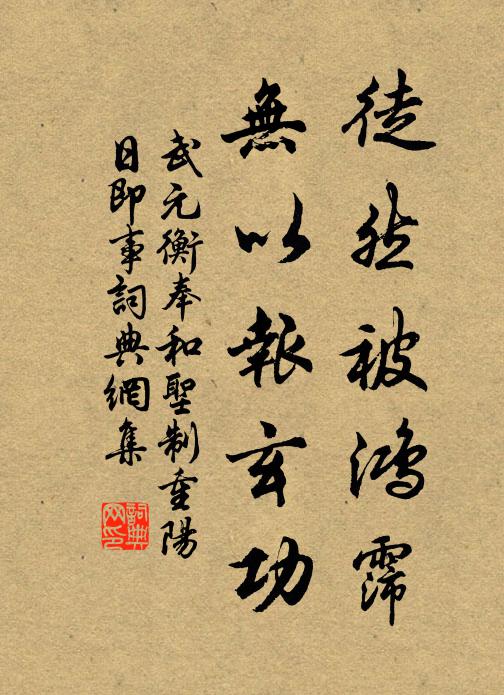 徒然被鴻霈
無以報玄功
武元衡奉和聖制重陽
日即事詞典網集
詞典
网印